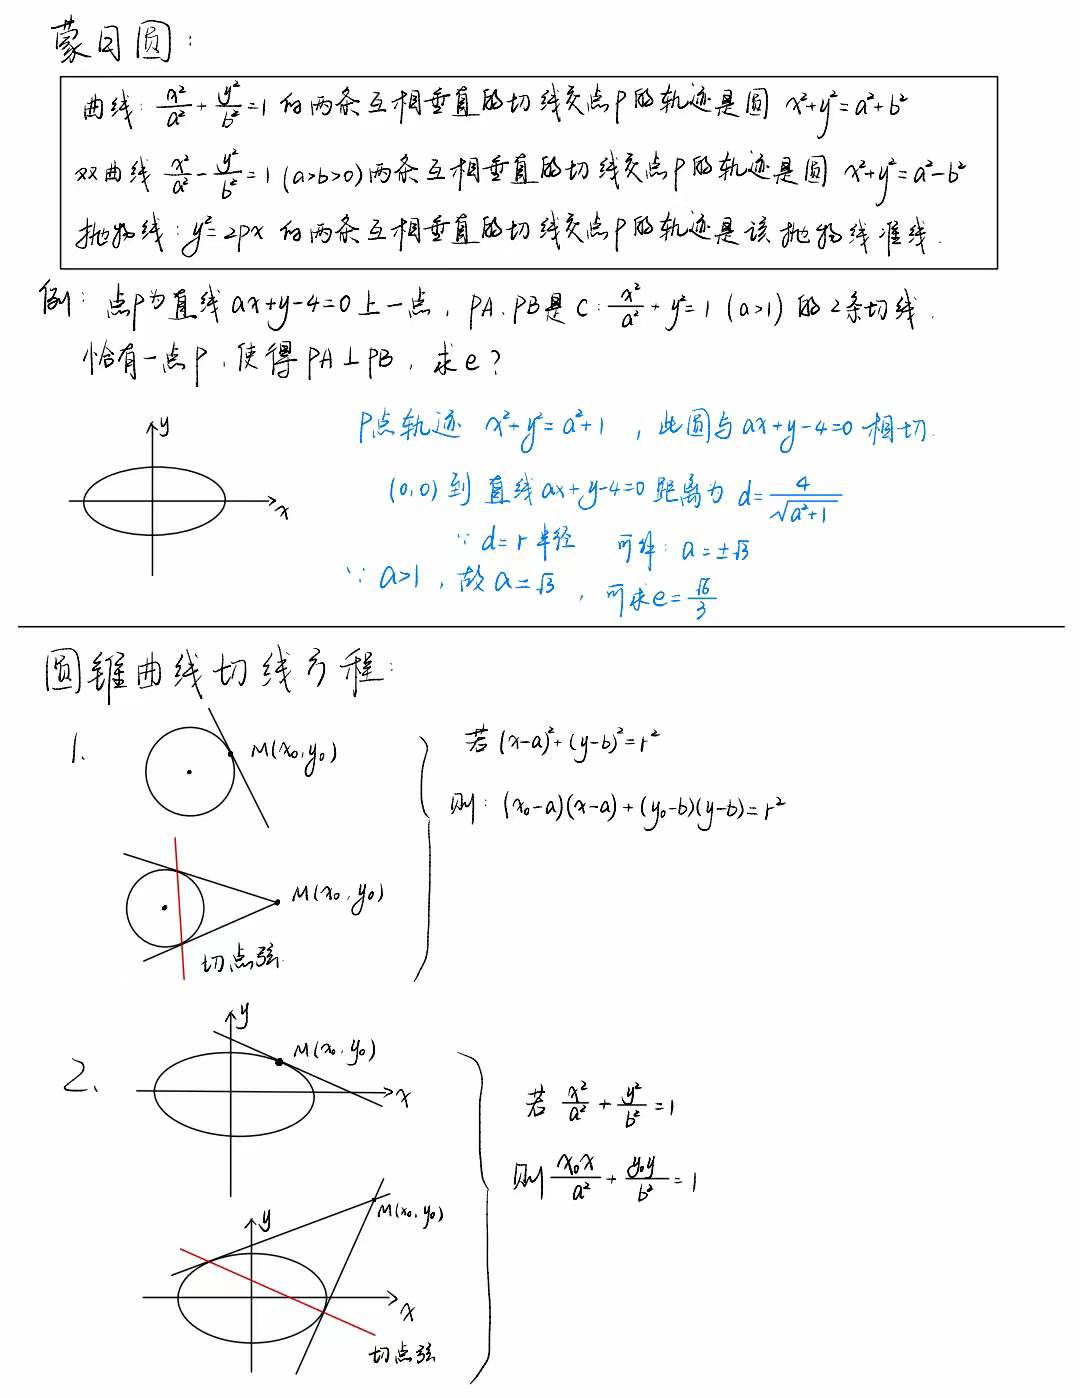 蒙日圆:
曲线: x²/a² + y²/b² = 1 的两条互相垂直的切线交点P的轨迹是圆 x²+y²=a²+b²
双曲线 x²/a² - y²/b² = 1 (a>b>0) 两条互相垂直的切线交点P的轨迹是圆 x²+y²=a²-b²
抛物线: y²=2px 的两条互相垂直的切线交点P的轨迹是该抛物线准线.
例: 点P为直线 ax+y-4=0 上一点, PA.PB是 C: x²/a² + y² = 1 (a>1) 的2条切线.
恰有一点P, 使得PA⊥PB, 求e?
y
x
P点轨迹 x²+y²=a²+1, 此圆与 ax+y-4=0 相切.
(0,0) 到 直线 ax+y-4=0 距离为 d=4/√(a²+1)
∵ d=r 半径 可得: a=±√3
∵ a>1, 故 a=√3, 可求 e=√6/3
圆锥曲线切线方程:
1.
M(x₀,y₀)
若 (x-a)²+(y-b)²=r²
则: (x₀-a)(x-a)+(y₀-b)(y-b)=r²
M(x₀,y₀)
切点弦.
2.
y
M(x₀,y₀)
x
若 x²/a² + y²/b² = 1
则 x₀x/a² + y₀y/b² = 1
M(x₀,y₀)
y
x
切点弦